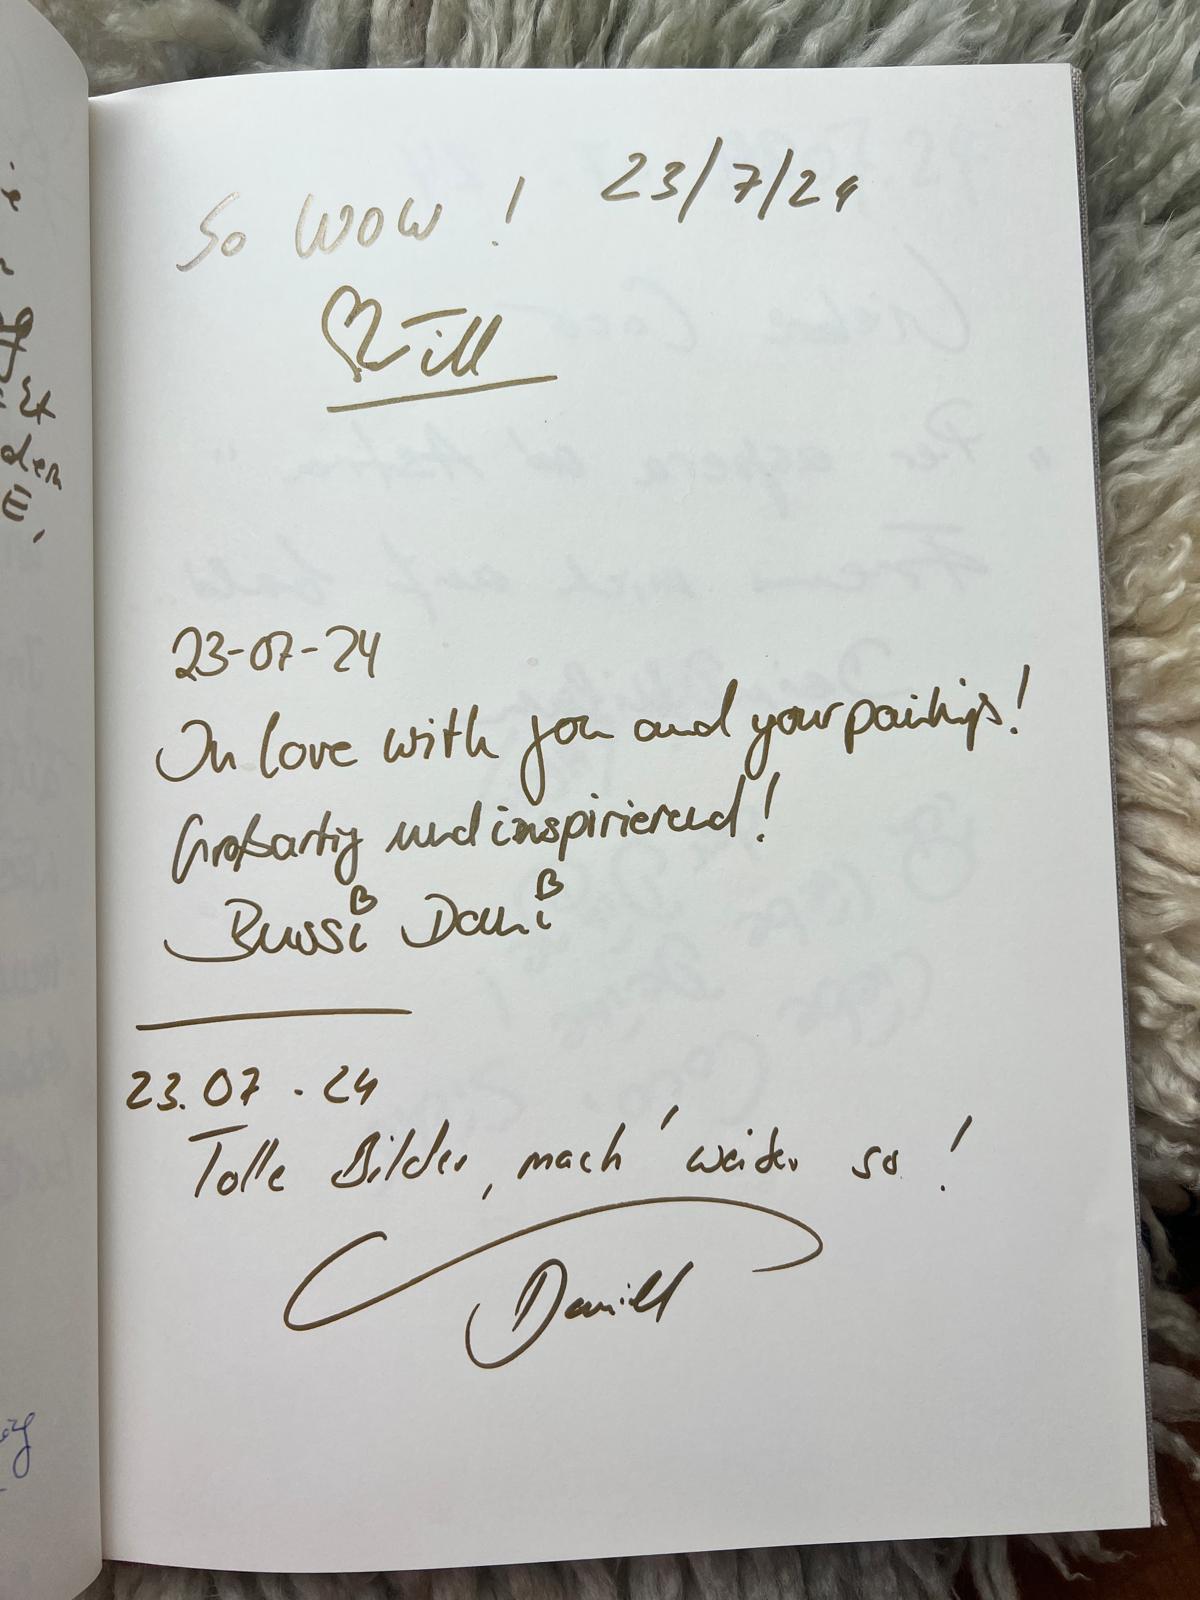 So WOW! 23/7/24
♡ Till
23-07-24
In love with you and your paintings!
Großartig und inspirierend!
Bussi Dani
23.07.24
Tolle Bilder, mach' weiter so!
Daniel
den
E,